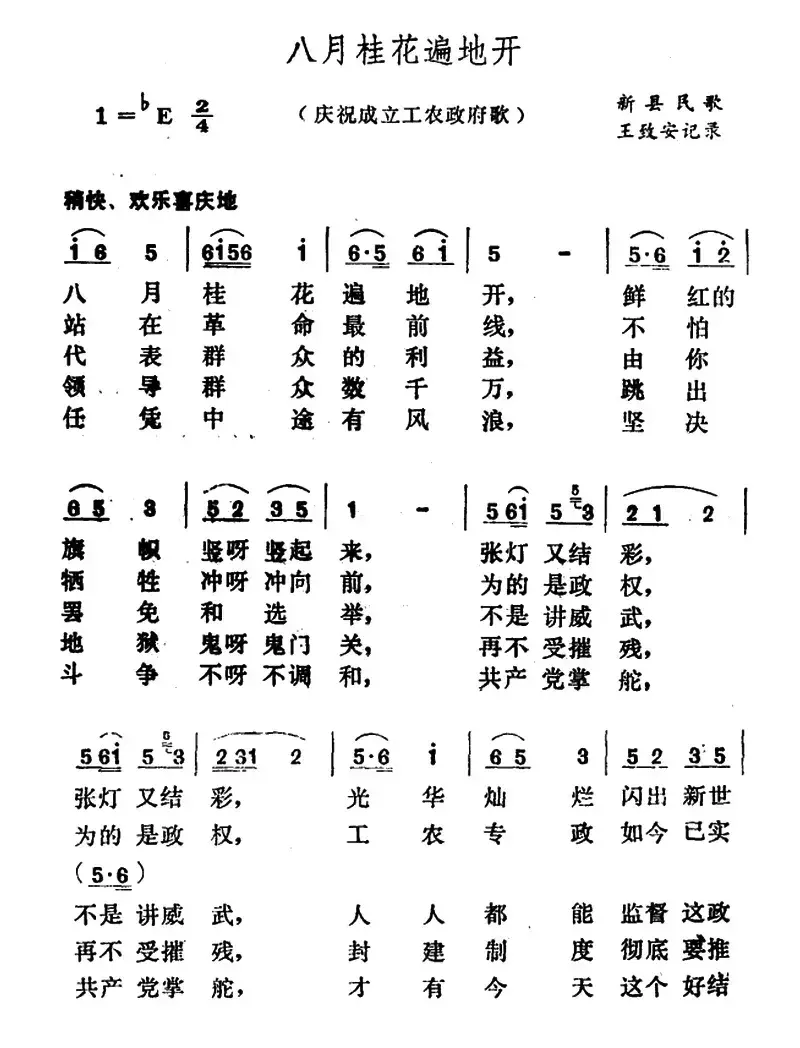 八月桂花遍地开
1=♭E 2/4 （庆祝成立工农政府歌） 新县民歌
王致安记录
稍快、欢乐喜庆地
i6 5 | 6i56 i | 6·5 6i | 5 - | 5·6 i2 |
八月桂花遍地开，鲜红的
站在革命最前线，不怕
代表群众的利益，由你
领导群众数千万，跳出
任凭中途有风浪，坚决
65 3 | 52 35 | 1 - | 56i 5 53 | 21 2 |
旗帜竖呀竖起来，张灯又结彩，
牺牲冲呀冲向前，为的是政权，
罢免和选举，不是讲威武，
地狱鬼呀鬼门关，再不受摧残，
斗争不呀不调和，共产党掌舵，
56i 5 53 | 231 2 | 5·6 i | 65 3 | 52 35 |
张灯又结彩，光华灿烂闪出新世
为的是政权，工农专政如今已实
（5·6）
不是讲威武，人人都能监督这政
再不受摧残，封建制度彻底要推
共产党掌舵，才有今天这个好结